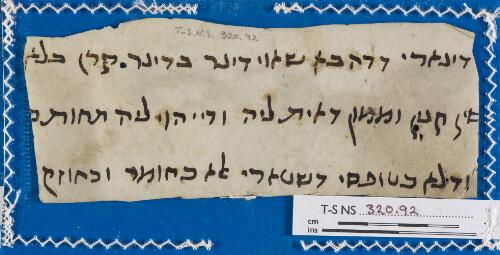 T-S.N.S. 320.92
דינארי דדהבא שאוי דינר בדינר. קרן בלא
קנין וממון דאית ליה ודייהוי ליה תחות
ודלא כטופסי דשטארי אלא כחומר וכחוזק
T-S NS 320.92
cm
ins